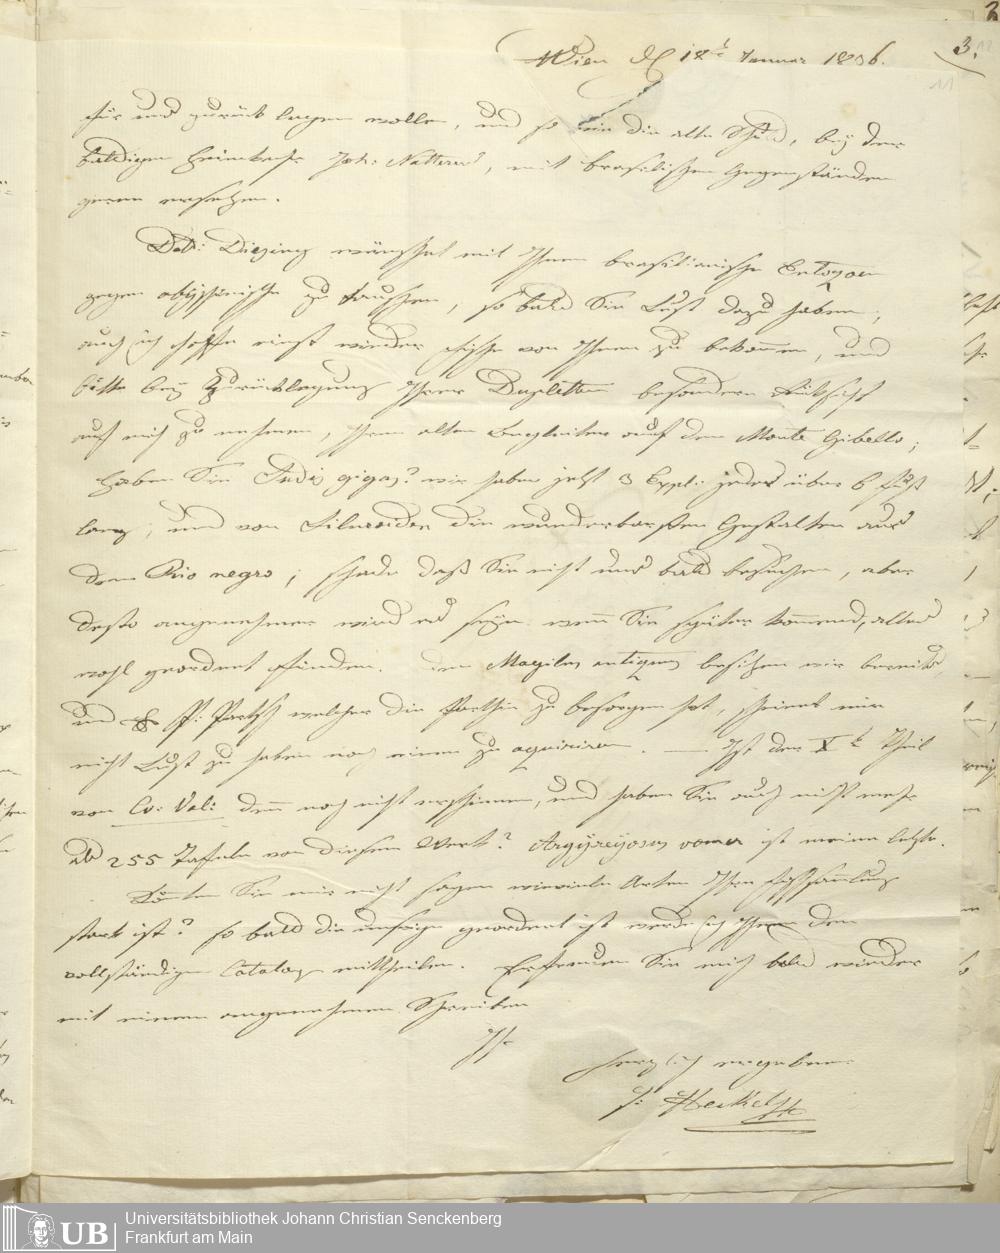 3.
12
11
Wien d 18t Januar 1836.
für uns zurück legen wollen, und so wie die alte Schuld, bey der
baldigen Heimkehr Joh: Natterers, mit brasilischen Gegenständen
gerne ersetzen.
Dr: Diesing wünschet mit Ihnen brasilianische Entozoen
gegen abyssinische zu tauschen, so bald Sie Lust dazu haben;
auch ich hoffe einst wieder Fische von Ihnen zu bekommen, und
bitte bey Zurücklegung Ihrer Dupletten besondere Rücksicht
auf mich zu nehmen, Ihren alten Begleiter auf den Monte Gibello;
haben Sie Sudis gigas? wir haben jetzt 3 Expl: jedes über 6 Fuß
lang; und von Siluroiden die wunderbarsten Gestalten aus
dem Rio negro; schade daß Sie nicht uns bald besuchen, aber
desto angenehmer wird es seyn wenn Sie später kommend, alles
wohl geordnet finden. Den Magilus antiquus besitzen wir bereits,
und H P: Partsch welcher die Parthie zu besorgen hat, scheint mir
nicht Lust zu haben noch einen zu aquiriren. — Ist der Xt Theil
von Cv: Val: denn noch nicht erschienen, und haben Sie auch nicht mehr
als 255 Tafeln von diesem Werk? Argyreyosus vomer ist meine letzte.
Könten Sie mir nicht sagen wieviele Arten Ihre Fischsammlung
stark ist? so bald die unsrige geordnet ist werde ich Ihnen den
vollständigen Catalog mittheilen. Erfreuen Sie mich bald wieder
mit einem angenehmen Schreiben
Ihr
herzlich ergebener
J: Heckel
UB
Universitätsbibliothek Johann Christian Senckenberg
Frankfurt am Main